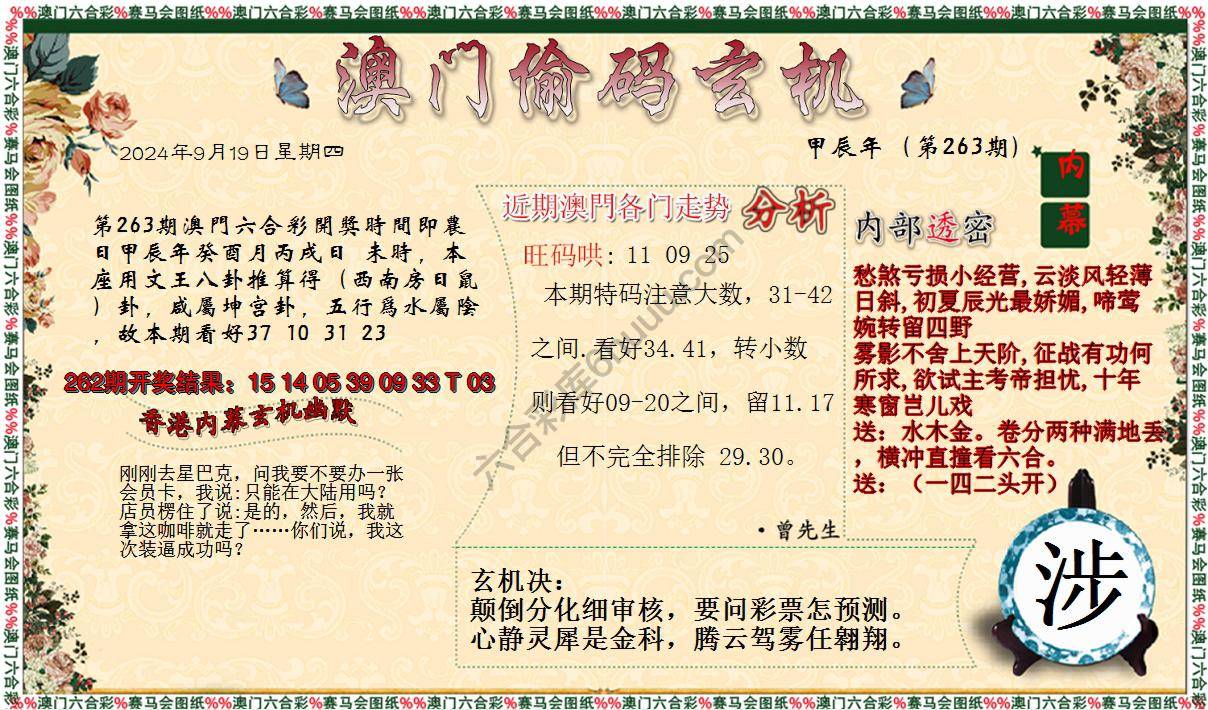 %%澳门六合彩%赛马会图纸%%澳门六合彩%赛马会图纸%%澳门六合彩%赛马会图纸%%澳门六合彩%赛马会图纸%%澳门六合彩%赛马会图纸%%澳门六合彩%赛马会图纸%%
澳门偷码玄机
2024年9月19日星期四
甲辰年（第263期）
内幕
第263期澳門六合彩開獎時間即農
日甲辰年癸酉月丙戌日 未時，本
座用文王八卦推算得（西南房日鼠
）卦，咸屬坤宫卦，五行爲水屬陰
，故本期看好37 10 31 23
262期开奖结果：15 14 05 39 09 33 T 03
香港内幕玄机幽默
刚刚去星巴克，问我要不要办一张
会员卡，我说:只能在大陆用吗？
店员楞住了说:是的，然后，我就
拿这咖啡就走了……你们说，我这
次装逼成功吗？
近期澳門各门走势 分析
旺码哄: 11 09 25
本期特码注意大数，31-42
之间.看好34.41，转小数
则看好09-20之间，留11.17
但不完全排除 29.30。
·曾先生
内部透密
愁煞亏损小经营,云淡风轻薄
日斜,初夏辰光最娇媚,啼莺
婉转留四野
雾影不舍上天阶,征战有功何
所求,欲试主考帝担忧,十年
寒窗岂儿戏
送：水木金。卷分两种满地丢
，横冲直撞看六合。
送：（一四二头开）
玄机决：
颠倒分化细审核，要问彩票怎预测。
心静灵犀是金科，腾云驾雾任翱翔。
涉
%%澳门六合彩%赛马会图纸%%澳门六合彩%赛马会图纸%%澳门六合彩%赛马会图纸%%澳门六合彩%赛马会图纸%%澳门六合彩%赛马会图纸%%澳门六合彩%赛马会图纸%%